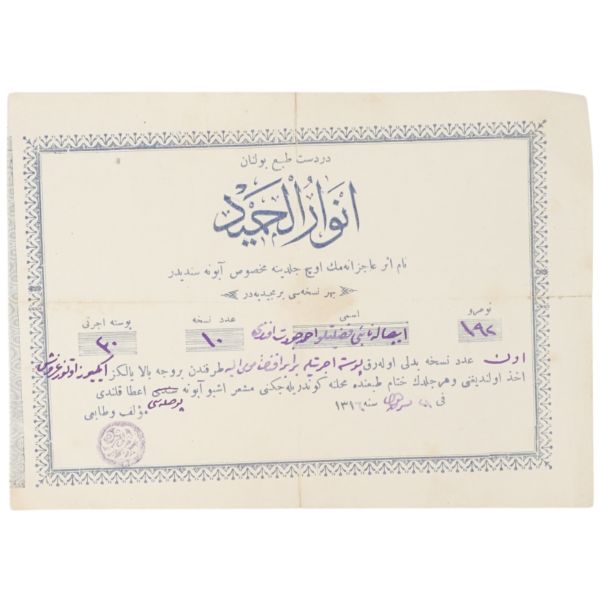 دردست طبع بولنان
انوار الحميد
نام اثر عاجزانه‌مك اوچ جلدينه مخصوص آبونه سنديدر
بهر نسخه‌سى بر مجيديه‌در
نومرو اسمى عدد نسخه پوسته اجرتى
١٩٢ ١٠ ٣٠
اون عدد نسخه بدلى اوله‌رق پوسته اجرتيله برابر طرفندن بروجه بالا يالكز
اخذ اولنديغنى وهر جلدك ختام طبعنده محلنه كوندريله‌جكنى مشعر اشبو آبونه سندى اعطا قلندى
فى سنه ١٣١ مؤلف وطابعى